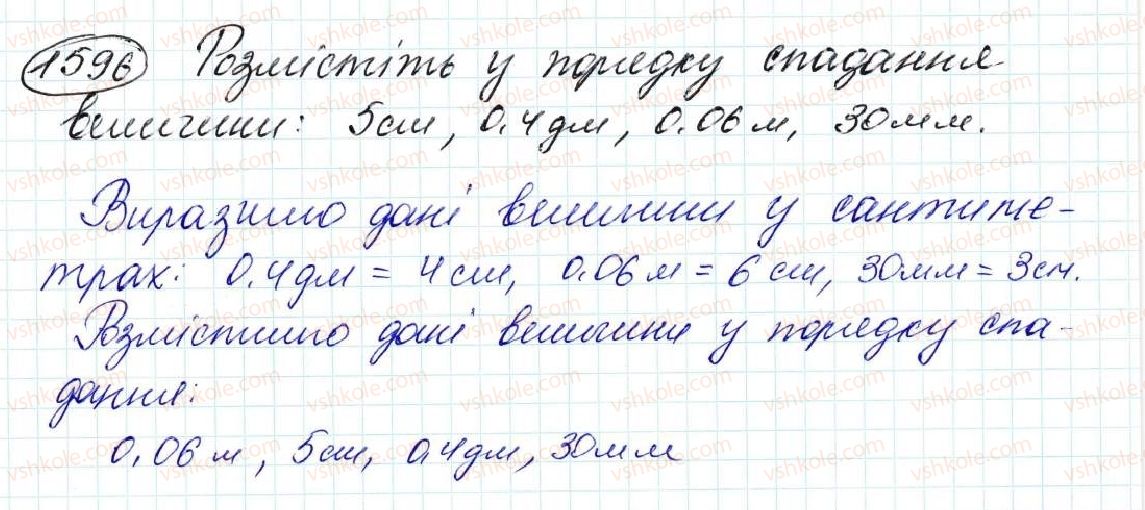 1596 Розмістіть у порядку спадання
величини: 5см, 0.4дм, 0.06м, 30мм.
Виразимо дані величини у сантиме-
трах: 0.4дм = 4см, 0.06м = 6см, 30мм = 3см.
Розмістимо дані величини у порядку спа-
дання:
0,06м, 5см, 0,4дм, 30мм